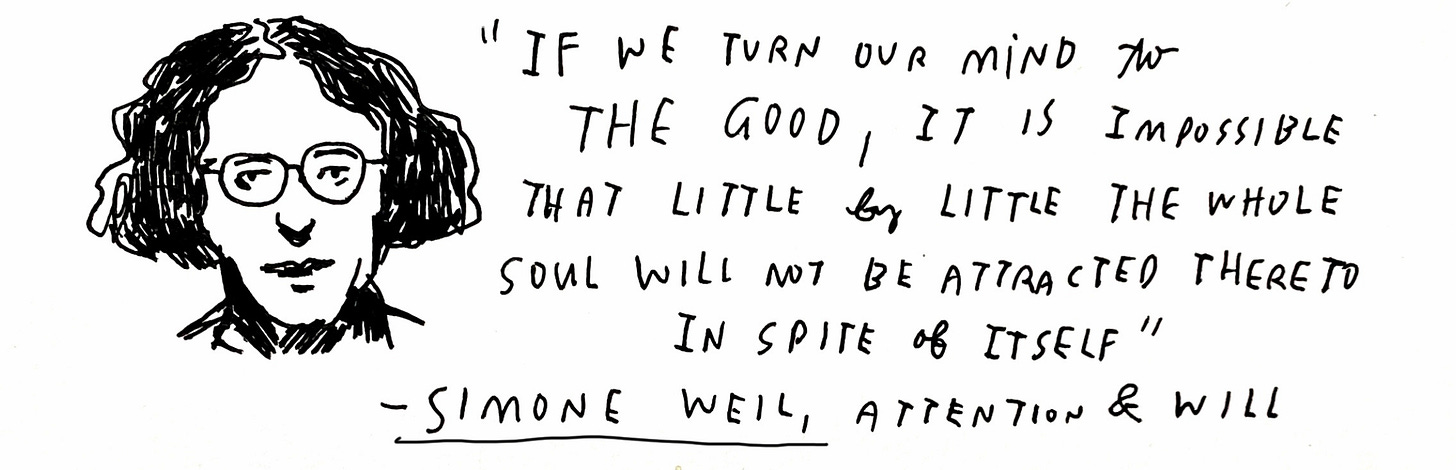 "IF WE TURN OUR MIND to
THE GOOD, IT IS IMPOSSIBLE
THAT LITTLE by LITTLE THE WHOLE
SOUL WILL NOT BE ATTRACTED THERETO
IN SPITE of ITSELF"
- SIMONE WEIL, ATTENTION & WILL